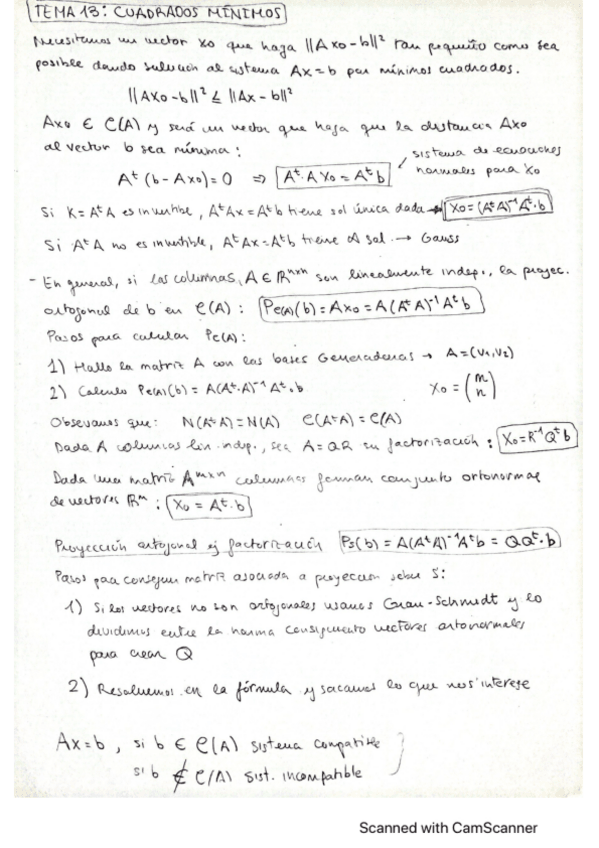 TEMA 13: CUADRADOS MÍNIMOS
Necesitamos un vector x₀ que haga ||Ax₀-b||² tan pequeño como sea
posible dando solución al sistema Ax=b por mínimos cuadrados.
||Ax₀-b||² ≤ ||Ax-b||²
Ax₀ ∈ C(A) y será un vector que haga que la distancia Ax₀
al vector b sea mínima:
Aᵗ(b-Ax₀)=0 ⇒ Aᵗ·A x₀ = Aᵗb
sistema de ecuaciones
normales para x₀
Si K=AᵗA es invertible, AᵗAx=Aᵗb tiene sol única dada → x₀=(AᵗA)⁻¹Aᵗ·b
Si AᵗA no es invertible, AᵗAx=Aᵗb tiene ∞ sol. → Gauss
- En general, si las columnas, A∈ℝᵐˣⁿ son linealmente indep., la proyec.
ortogonal de b en C(A): P_C(A)(b)=Ax₀=A(AᵗA)⁻¹Aᵗb
Pasos para calcular P_C(A):
1) Hallo la matriz A con las bases Generadoras → A=(v₁,v₂)
2) Calculo P_C(A)(b)=A(Aᵗ·A)⁻¹Aᵗ·b x₀=(m n)
Observamos que: N(AᵗA)=N(A) C(AᵗA)=C(A)
Dada A columnas lin. indep., sea A=QR su factorización: x₀=R⁻¹Qᵗb
Dada una matriz Aᵐˣⁿ columnas forman conjunto ortonormal
de vectores ℝᵐ: x₀=Aᵗ·b
Proyección ortogonal y factorización Ps(b)=A(AᵗA)⁻¹Aᵗb=QQᵗ·b
Pasos para conseguir matriz asociada a proyección sobre S:
1) Si los vectores no son ortogonales usamos Gram-Schmidt y lo
dividimos entre la norma consiguiendo vectores ortonormales
para crear Q
2) Resolvemos en la fórmula y sacamos lo que nos interese
Ax=b, si b ∈ C(A) sistema compatible
si b ∉ C(A) sist. incompatible
Scanned with CamScanner